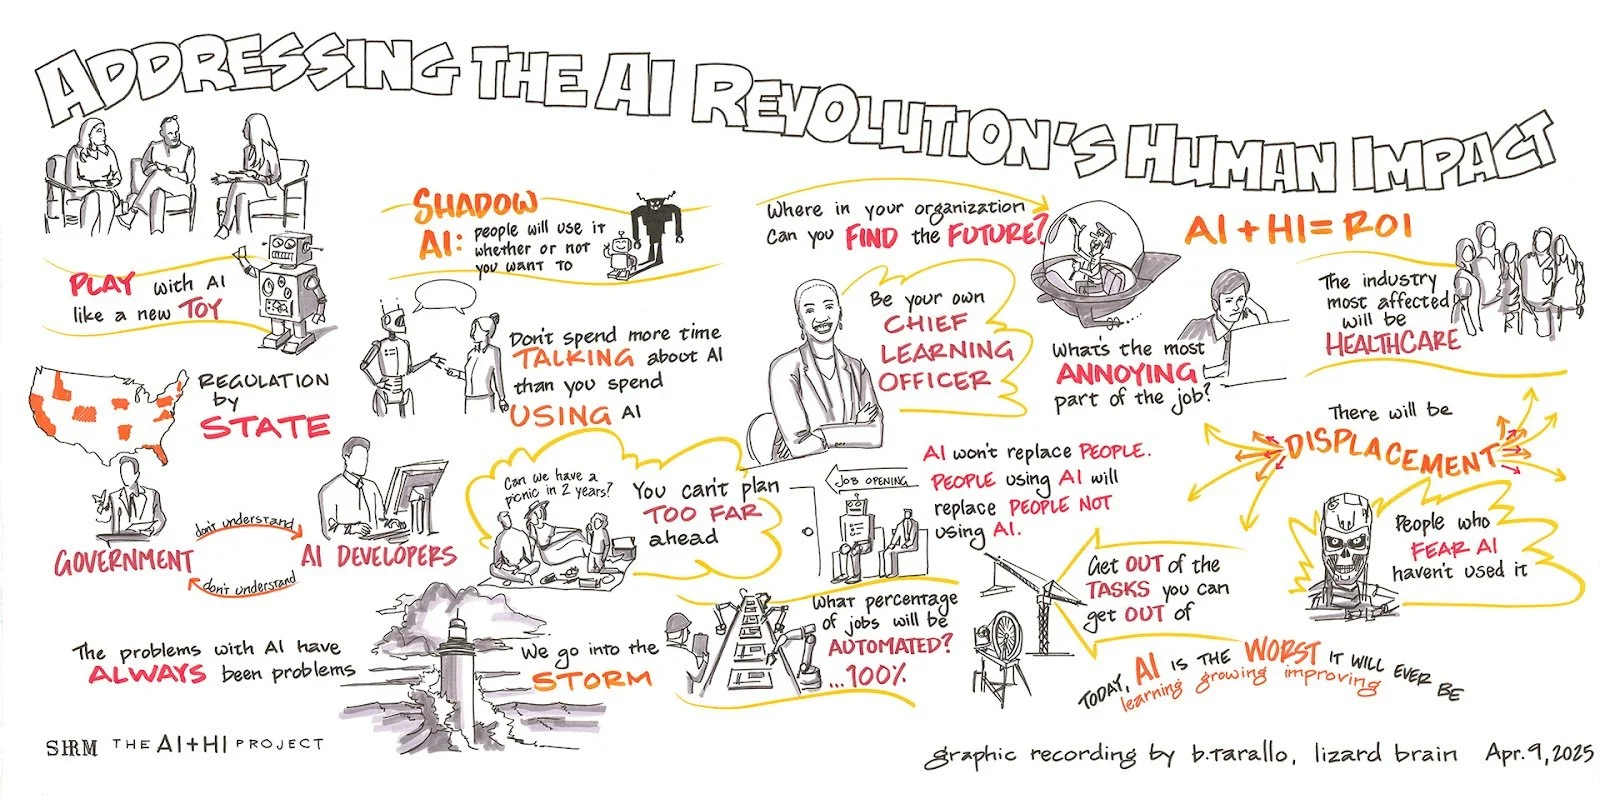 ADDRESSING THE AI REVOLUTION'S HUMAN IMPACT
PLAY with AI
like a new TOY
SHADOW
AI: people will use it
whether or not
you want to
Where in your organization
can you FIND the FUTURE?
AI + HI = ROI
The industry
most affected
will be
HEALTHCARE
Be your own
CHIEF
LEARNING
OFFICER
Don't spend more time
TALKING about AI
than you spend
USING AI
What's the most
ANNOYING
part of the job?
REGULATION
by
STATE
There will be
DISPLACEMENT
GOVERNMENT
don't understand
AI DEVELOPERS
don't understand
Can we have a
picnic in 2 years?
You can't plan
TOO FAR
ahead
JOB OPENING
AI won't replace PEOPLE.
PEOPLE using AI will
replace PEOPLE NOT
using AI.
People who
FEAR AI
haven't used it
Get OUT of the
TASKS you can
get OUT of
The problems with AI have
ALWAYS been problems
We go into the
STORM
What percentage
of jobs will be
AUTOMATED?
...100%
TODAY, AI IS THE WORST IT WILL EVER BE
learning growing improving
SHRM THE AI+HI PROJECT
graphic recording by b.tarallo, lizard brain Apr. 9, 2025